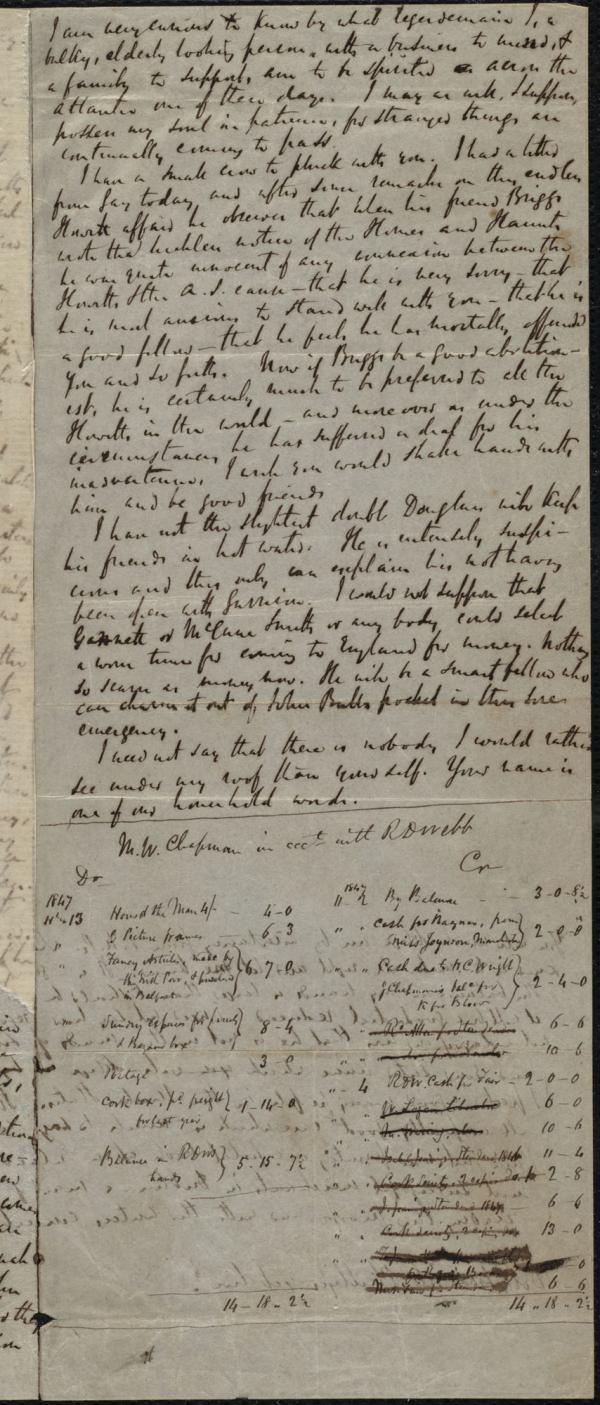 I am very curious to know by what legerdemain I, a
bulky, elderly looking person, with a business to mind, &
a family to support, am to be spirited across the
Atlantic one of these days. I may as well, I suppose,
possess my soul in patience, for stranger things are
continually coming to pass.
I have a small crow to pluck with you. I had a letter
from Gay today, and after some remarks on this endless
Howitt affair he observes that when his friend Briggs
wrote the luckless notice of the Homes and Haunts
he was quite innocent of any connexion between the
Howitts & the A. S. cause – that he is very sorry – that
he is most anxious to stand well with you – that he is
a good fellow – that he feels he has mortally offended
you and so forth. Now if Briggs be a good abolition-
ist, he is certainly much to be preferred to all the
Howitts in the world – and moreover as under the
circumstances he has suffered a deal for his
inadvertence, I wish you would shake hands with
him and be good friends
I have not the slightest doubt Douglass will keep
his friends in hot water. He is intensely suspi-
cious and this only can explain his not having
been open with Garrison. I could not suppose that
Garnett or McCune Smith or any body could select
a worse time for coming to England for money. Nothing
so scarce as money now. He will be a smart fellow who
can charm it out of John Bull's pocket in this sore
emergency.
I need not say that there is nobody I would rather
see under my roof than yourself. Your name is
one of our household words.
M. W. Chapman in acct with R D Webb
Dr Cr
1847 1847
11 13 Honor the Man 4/- 4-0
11 2 By Balance 3-0-8½
" 6 Picture frames 6-3
" " Cash for Bazaar, from
Miss Joynson, 2-0-0
" Fancy Articles, made by
the Blind Poor, &
in Belfast 6-7-0
" " Cash due to H.C. Wright
Chapman's for
2-4-0
Sundry
& Bazaar box 8-4
6-6
" " 10-6
Portage 3-
" 4 RDW Cash for Fair 2-0-0
Cork box, pd freight
for last year 1-14-0
" 6-0
" 10-6
Balance in RDW's
hands 5-15-7½
" " 11-4
" 2-8
" " 6-6
" " 13-0
" 0
6-6
14-18-2½ 14-18-2½